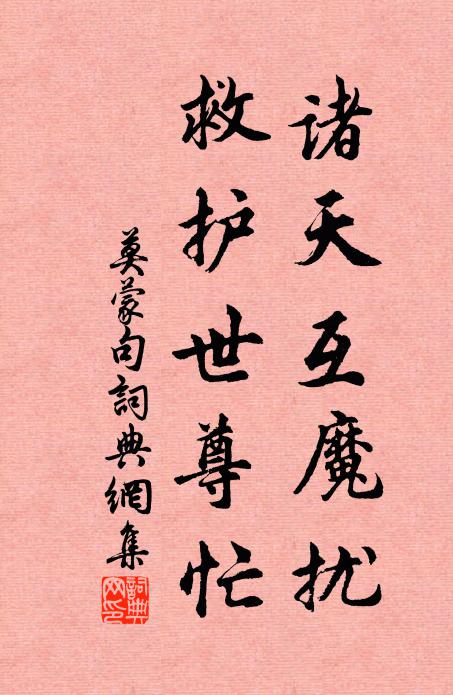 诸天互魔扰
救护世尊忙
莫蒙句詞典網集
詞典网印